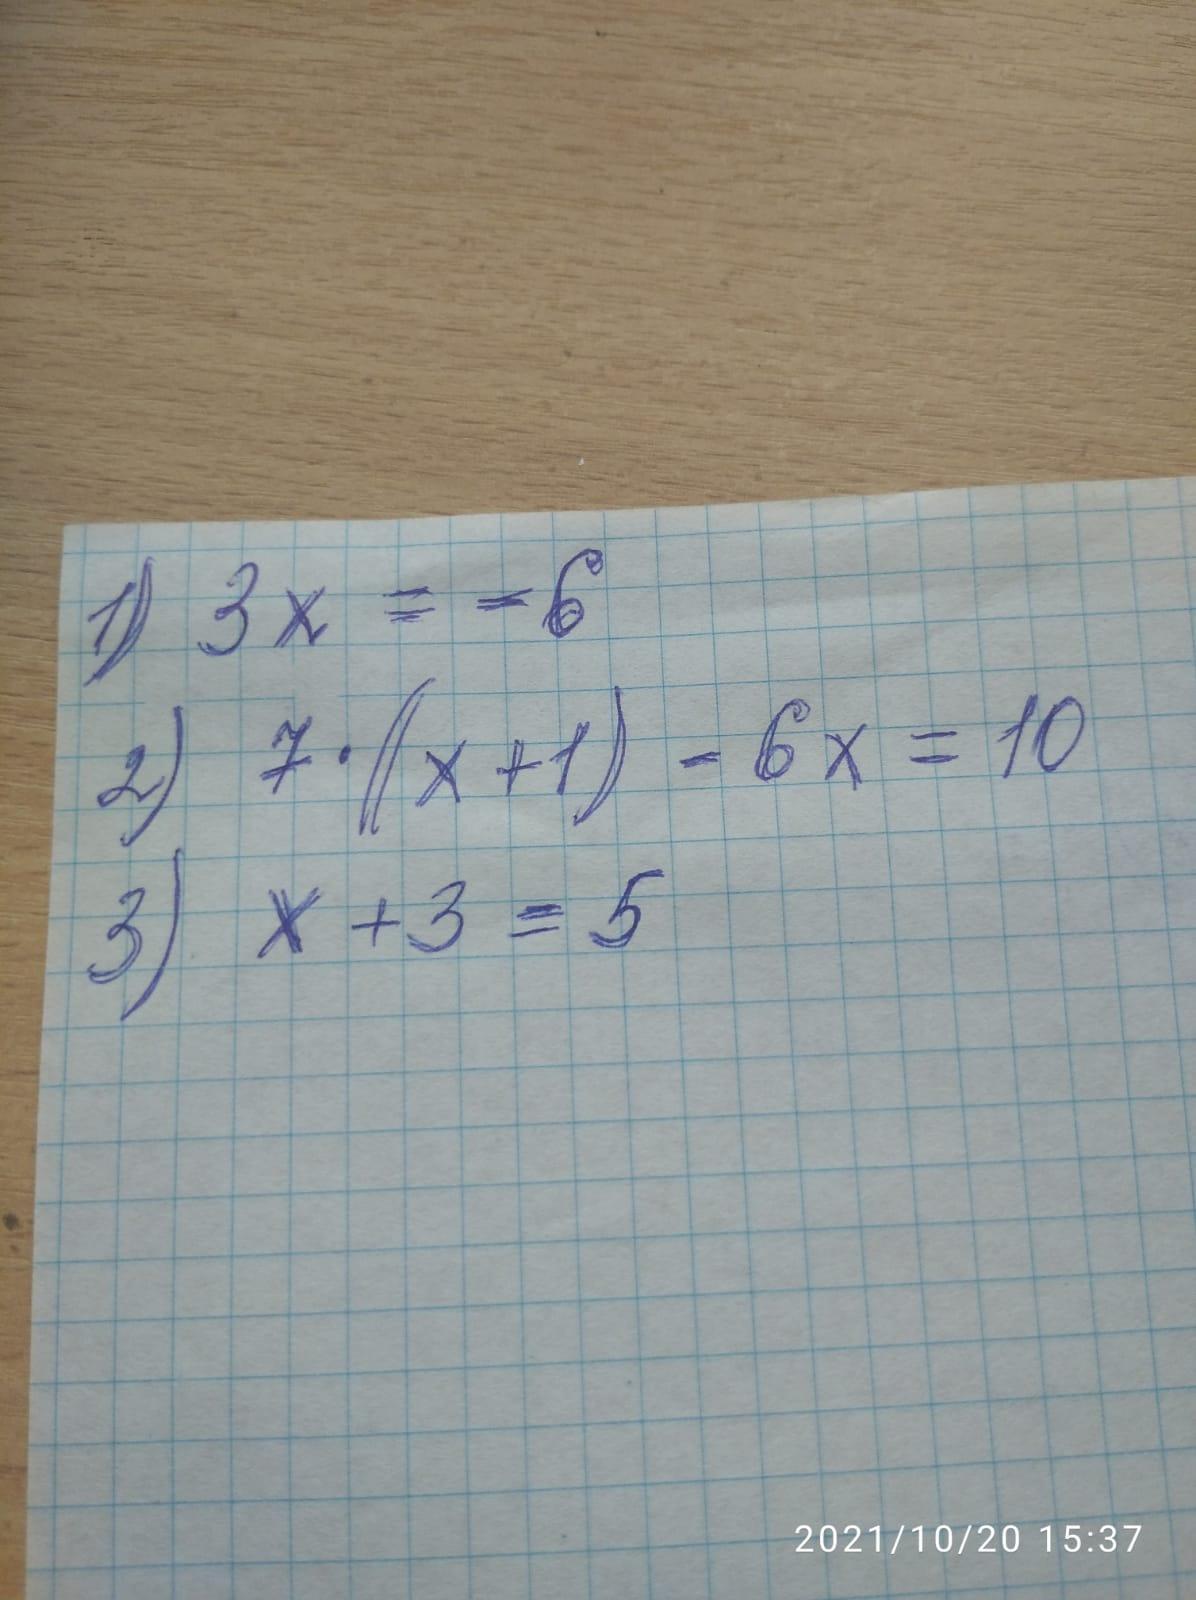 1) 3x = -6
2) 7·(x+1) - 6x = 10
3) x + 3 = 5
2021/10/20 15:37